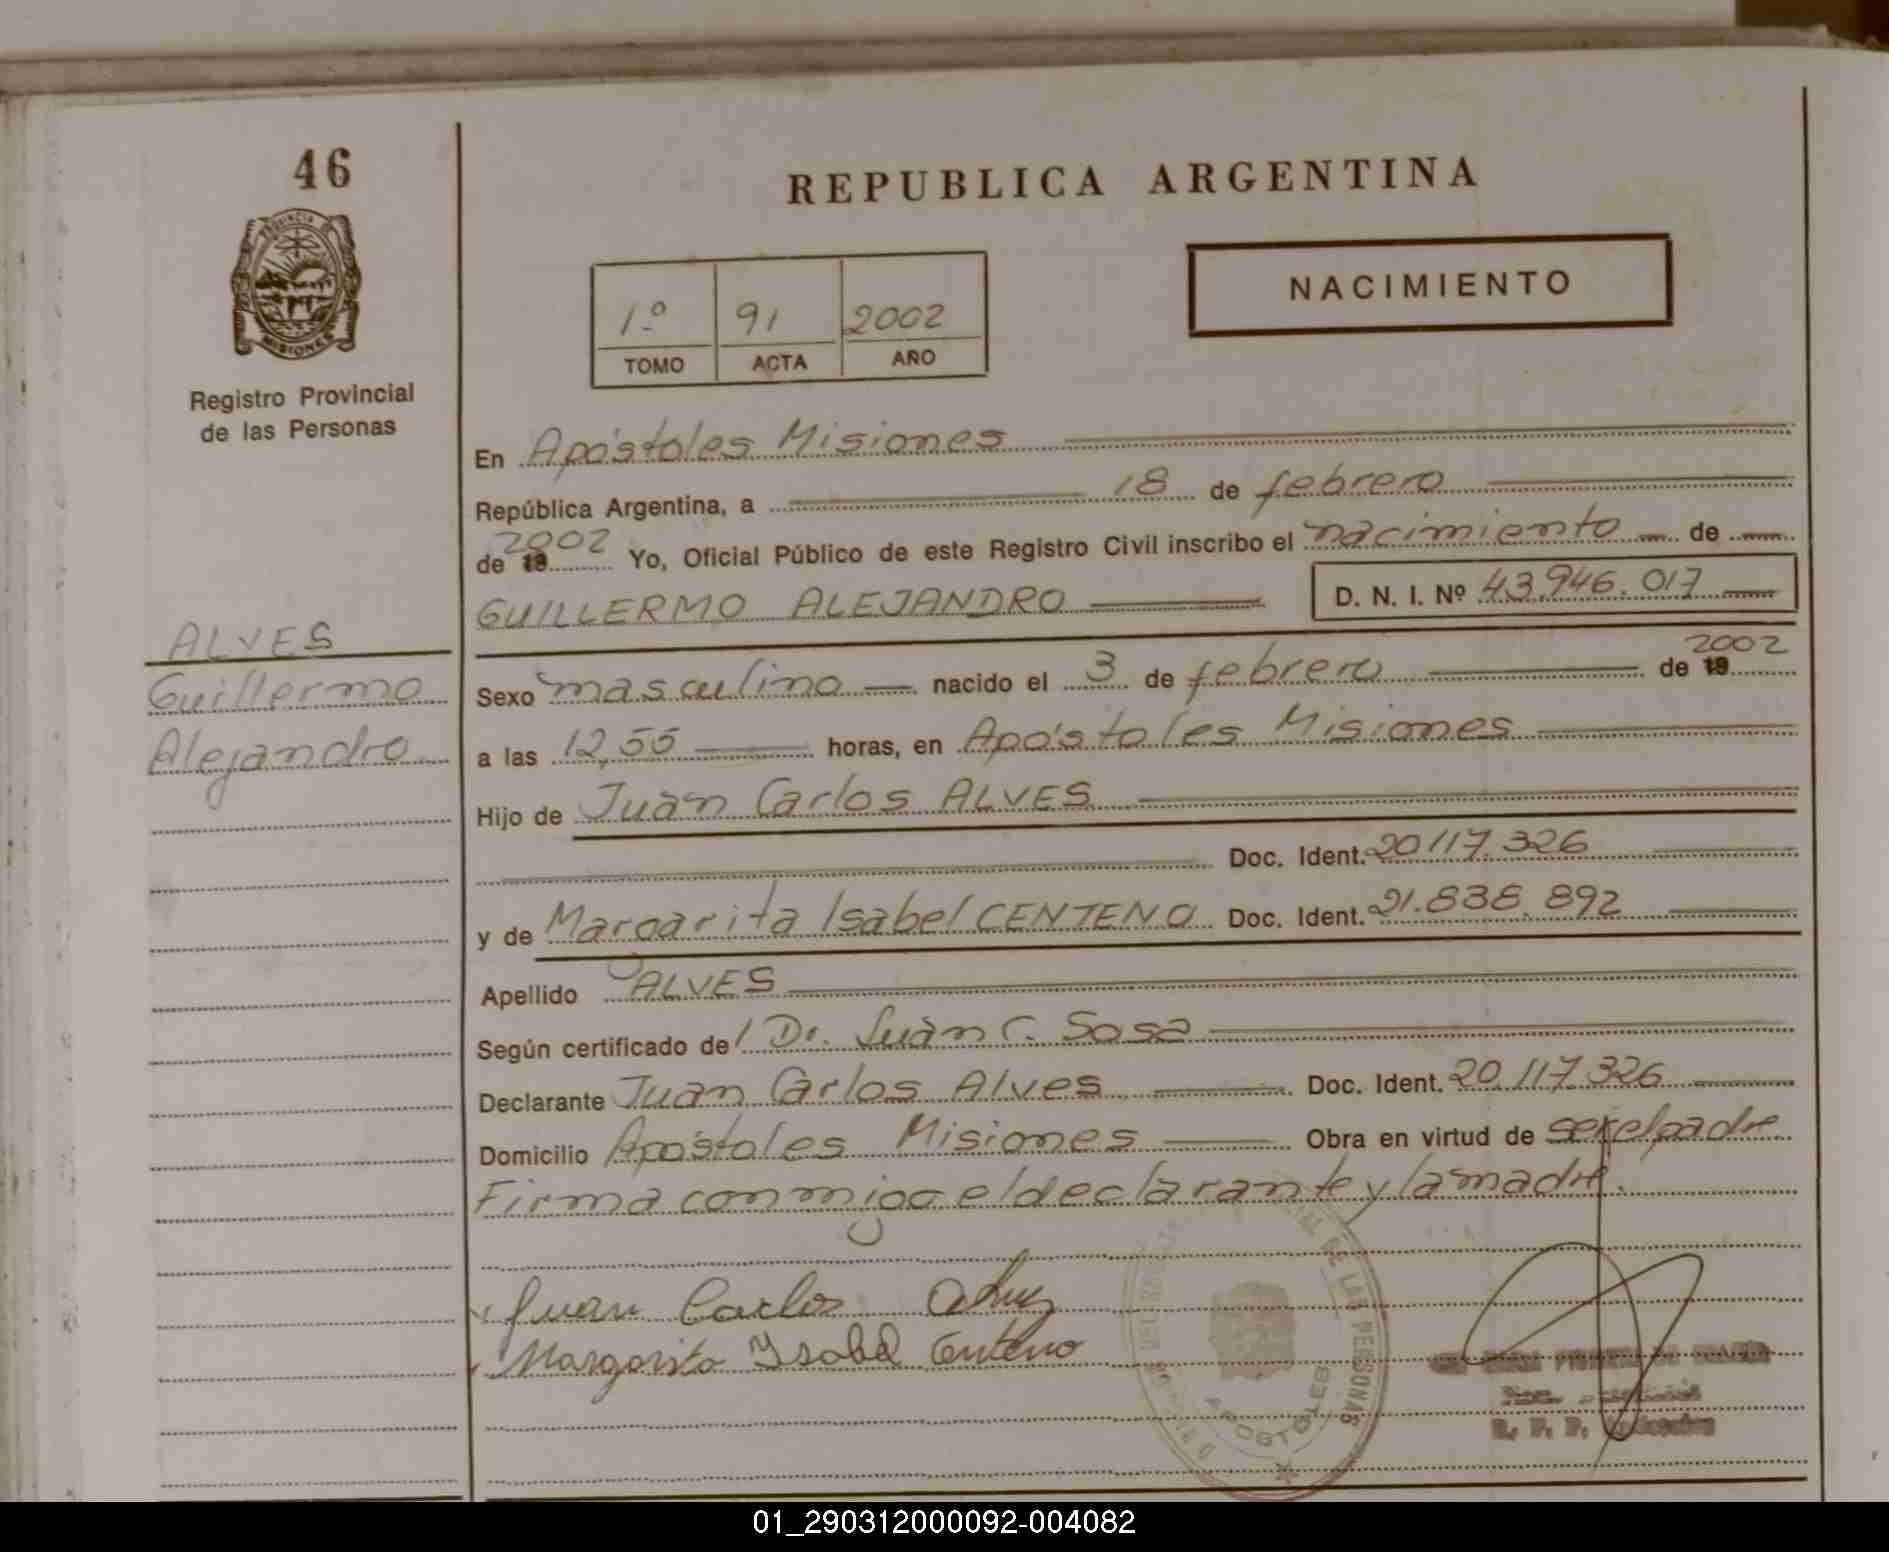 46
REPUBLICA ARGENTINA
PROVINCIA
MISIONES
Registro Provincial
de las Personas
1º 91 2002
TOMO ACTA AÑO
NACIMIENTO
En Apóstoles Misiones
República Argentina, a 18 de febrero
de 19 2002 Yo, Oficial Público de este Registro Civil inscribo el nacimiento de
GUILLERMO ALEJANDRO D. N. I. Nº 43.946.017
ALVES
Guillermo
Alejandro
Sexo masculino nacido el 3 de febrero de 19 2002
a las 12,55 horas, en Apóstoles Misiones
Hijo de Juan Carlos ALVES
Doc. Ident. 20.117.326
y de Margarita Isabel CENTENO Doc. Ident. 21.838.892
Apellido ALVES
Según certificado de/ Dr. Juan C. Sosa
Declarante Juan Carlos Alves Doc. Ident. 20.117.326
Domicilio Apóstoles Misiones Obra en virtud de ser el padre
Firma conmigo el declarante y la madre.
Juan Carlos Alves
Margarita Ysabel Centeno
DE LAS PERSONAS
APOSTOLES
R. P. P.
01_290312000092-004082